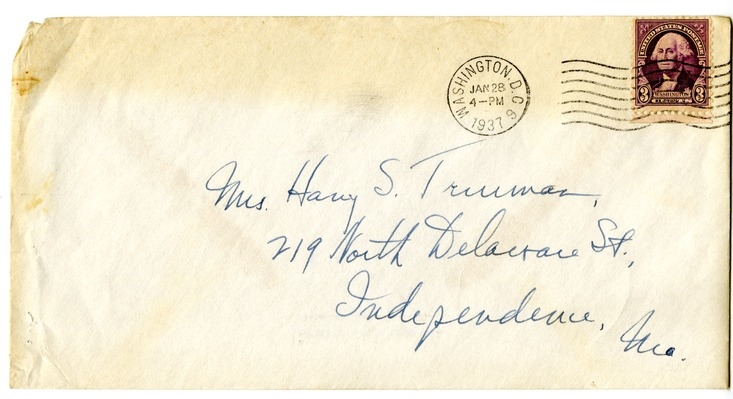 UNITED STATES POSTAGE
WASHINGTON
3 3
WASHINGTON, D.C.
JAN 28
4-PM
1937
9
Mrs. Harry S. Truman,
219 North Delaware St.,
Independence,
Mo.